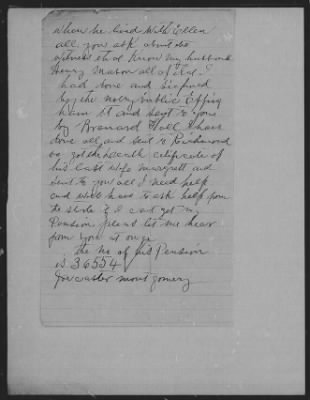 when he lived with Ellen
all you ask about the
witness that know my husband
Henry Mason all of it I
had done and signed
by the notry public Epping
ham it and sent to you
by Brenard Hall I have
done all and sent to Richmond
va got the death citificate of
his last wife Margrett and
sent to you all I need help
and will have to ask help from
the state if I cant get my
Pension pleas let me hear
from you at onge
the no of his Pension
is 36554
montgomery